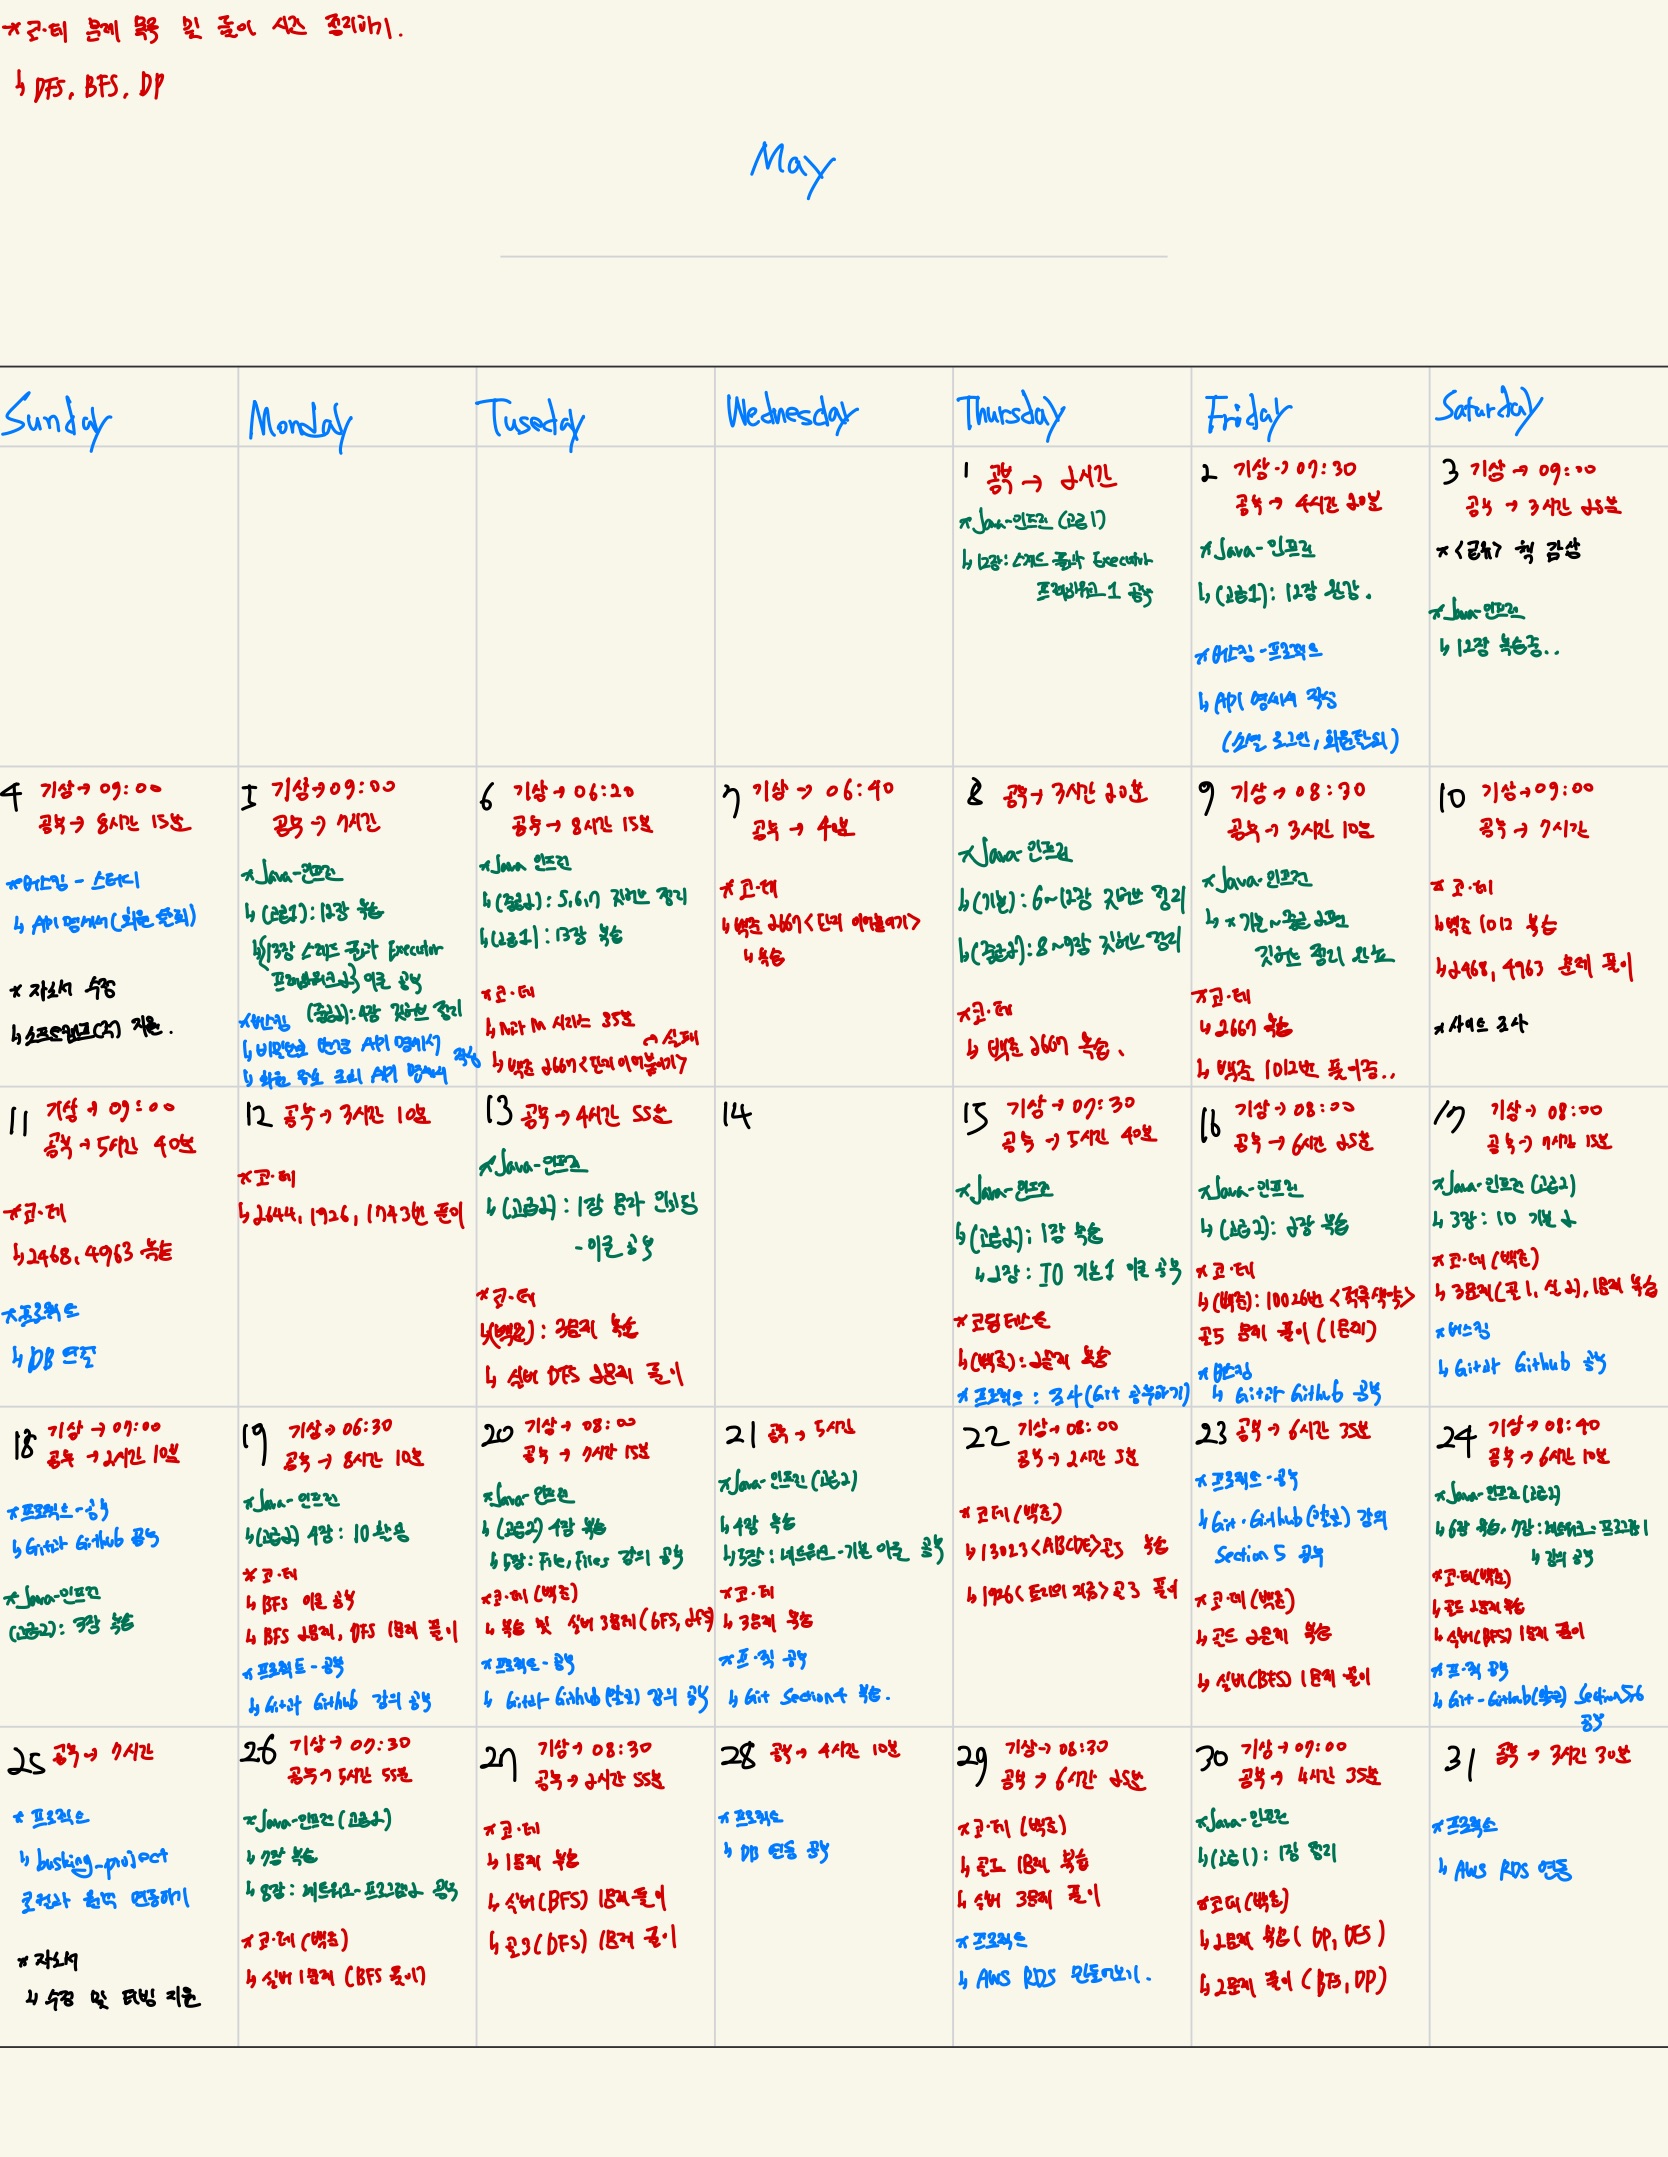 *코·테 문제 목록 및 풀이 시간 정리하기.
↳ DFS, BFS, DP
May
Sunday Monday Tuseday Wednesday Thursday Friday Saturday
1 공부 → 2시간
*Java-인프런 (고급1)
↳ 12장: 스레드 풀과 Executor
프레임워크1 공부
2 기상 → 07:30
공부 → 4시간 20분
*Java-인프런
↳ (고급1): 12장 완강.
*버스킹-프로젝트
↳ API 명세서 작성
(소셜 로그인, 회원탈퇴)
3 기상 → 09:00
공부 → 3시간 25분
* 책 감상
*Java-인프런
↳ 12장 복습중..
4 기상 → 09:00
공부 → 8시간 15분
*버스킹 - 스터디
↳ API 명세서(회원 )
* 자소서 수정
↳ 지원.
5 기상 → 09:00
공부 → 7시간
*Java-인프런
↳ (고급1): 12장 복습
↳ (13장 스레드 풀과 Executor
프레임워크2) 이론 공부
(중급2): 4장 깃허브 정리
*버스킹
↳ 비밀번호 변경 API 명세서 작성
↳ 회원 조회 API 명세서
6 기상 → 06:20
공부 → 8시간 15분
*Java 인프런
↳ (중급2): 5,6,7 깃허브 정리
↳ (고급1): 13장 복습
*코·테
↳ N과 M 시리즈 35분
↳ 백준 2667<단지 이어붙이기> → 실패
7 기상 → 06:40
공부 → 40분
*코·테
↳ 백준 2667<단지 이어붙이기>
↳ 복습
8 공부 → 3시간 20분
*Java-인프런
↳ (기본): 6~12장 깃허브 정리
↳ (중급2): 8~9장 깃허브 정리
*코·테
↳ 백준 2667 복습.
9 기상 → 08:30
공부 → 3시간 10분
*Java-인프런
↳ *기본~중급 2편
깃허브 정리 완료
*코·테
↳ 2667 복습
↳ 백준 1012번 풀이중..
10 기상 → 09:00
공부 → 7시간
*코·테
↳ 백준 1012 복습
↳ 2468, 4963 문제 풀이
*사이드 조사
11 기상 → 09:00
공부 → 5시간 40분
*코·테
↳ 2468, 4963 복습
*프로젝트
↳ DB 연동
12 공부 → 3시간 10분
*코·테
↳ 2644, 1926, 1743번 풀이
13 공부 → 4시간 55분
*Java-인프런
↳ (고급2): 1장 문자 인코딩
- 이론 공부
*코·테
↳ (백준): 3문제 복습
↳ 실버 DFS 2문제 풀이
14
15 기상 → 07:30
공부 → 5시간 40분
*Java-인프런
↳ (고급2): 1장 복습
↳ 2장: IO 기본1 이론 공부
*코딩테스트
↳ (백준): 2문제 복습
*프로젝트 : 조사(Git 공부하기)
16 기상 → 08:00
공부 → 6시간 25분
*Java-인프런
↳ (고급2): 2장 복습
*코·테
↳ (백준): 10026번 <적록색약>
골5 문제 풀이 (1문제)
*버스킹
↳ Git과 Github 공부
17 기상 → 08:00
공부 → 7시간 15분
*Java-인프런 (고급2)
↳ 3장: IO 기본 2
*코·테 (백준)
↳ 3문제(골1, 실2), 1문제 복습
*버스킹
↳ Git과 Github 공부
18 기상 → 07:00
공부 → 2시간 10분
*프로젝트-공부
↳ Git과 Github 공부
*Java-인프런
(고급2): 3장 복습
19 기상 → 06:30
공부 → 8시간 10분
*Java-인프런
↳ (고급2) 4장: IO 활용
*코·테
↳ BFS 이론 공부
↳ BFS 2문제, DFS 1문제 풀이
*프로젝트-공부
↳ Git과 Github 강의 공부
20 기상 → 08:00
공부 → 7시간 15분
*Java-인프런
↳ (고급2) 4장 복습
↳ 5장: File, Files 강의 공부
*코·테 (백준)
↳ 복습 및 실버 3문제(BFS, DFS)
*프로젝트-공부
↳ Git과 Github(얄코) 강의 공부
21 공부 → 5시간
*Java-인프런 (고급2)
↳ 4장 복습
↳ 5장: 네트워크-기본 이론 공부
*코·테
↳ 3문제 복습
*프·젝 공부
↳ Git Section4 복습.
22 기상 → 08:00
공부 → 2시간 5분
*코·테 (백준)
↳ 13023<ABCDE>골5 복습
↳ 1976<트리의 지름>골3 풀이
23 공부 → 6시간 35분
*프로젝트-공부
↳ Git·Github(얄코) 강의
Section 5 공부
*코·테 (백준)
↳ 골드 2문제 복습
↳ 실버(BFS) 1문제 풀이
24 기상 → 08:40
공부 → 6시간 10분
*Java-인프런(고급2)
↳ 6장 복습, 7장: 네트워크-프로그램1
↳ 강의 공부
*코·테(백준)
↳ 골드 2문제 복습
↳ 실버(BFS) 1문제 풀이
*프·젝 공부
↳ Git-Github(얄코) Section5,6
공부
25 공부 → 7시간
*프로젝트
↳ busking_project
로컬과 원격 연동하기
*자소서
↳ 수정 및 지원
26 기상 → 07:30
공부 → 5시간 55분
*Java-인프런 (고급2)
↳ 7장 복습
↳ 8장: 네트워크-프로그램2 공부
*코·테 (백준)
↳ 실버 1문제 (BFS 풀이)
27 기상 → 08:30
공부 → 2시간 55분
*코·테
↳ 1문제 복습
↳ 실버(BFS) 1문제 풀이
↳ 골3(DFS) 1문제 풀이
28 공부 → 4시간 10분
*프로젝트
↳ DB 연동 공부
29 기상 → 08:30
공부 → 6시간 25분
*코·테 (백준)
↳ 골드 1문제 복습
↳ 실버 3문제 풀이
*프로젝트
↳ AWS RDS 만들어보기.
30 기상 → 07:00
공부 → 4시간 35분
*Java-인프런
↳ (고급1): 1장 정리
*코·테(백준)
↳ 2문제 복습 ( DP, DFS )
↳ 2문제 풀이 (BFS, DP)
31 공부 → 3시간 30분
*프로젝트
↳ AWS RDS 연동